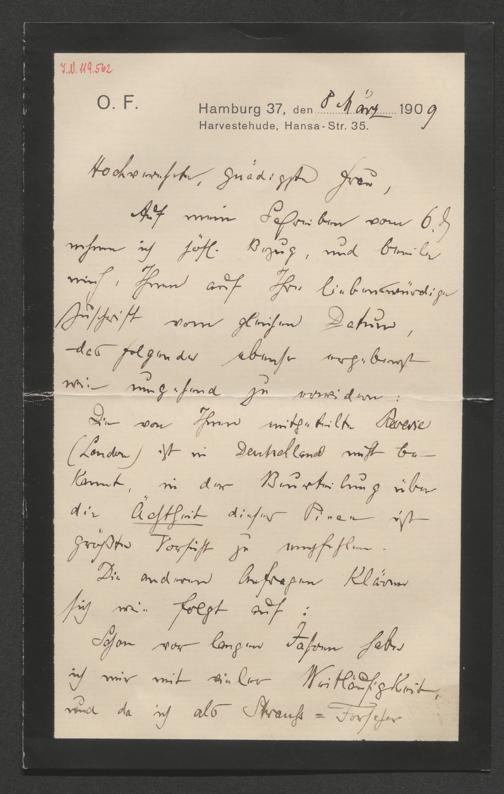 J.N. 119.502
O. F.
Hamburg 37, den 8 März 1909
Harvestehude, Hansa-Str. 35.
Hochverehrte, gnädigste Frau,
Auf mein Schreiben vom 6. d
nehme ich höfl. Bezug, und beeile
mich, Ihnen auf Ihre liebenswürdige
Zuschrift vom gleichen Datum,
das folgende ebenso ergebenst
wie umgehend zu erwidern:
Die von Ihnen mitgeteilte Reverie
(London) ist in Deutschland nicht be-
kannt, in der Beurteilung über
die Ächtheit dieser Piece ist
größte Vorsicht zu empfehlen.
Die anderen Anfragen klären
sich wie folgt auf:
Schon vor langen Jahren habe
ich mir mit vieler Weitläufigkeit,
und da ich als Strauss=Forscher